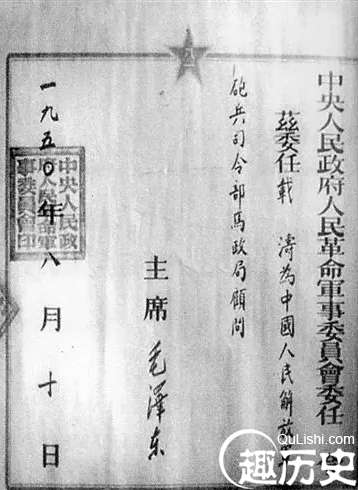 中央人民政府人民革命軍事委員會委任
茲委任載濤為中國人民解放
砲兵司令部馬政局顧問
主席毛澤东
一九五〇年八月十日
中央人民政
府人民革命軍
事委員會印
八一
QuLishi.com
趣历史